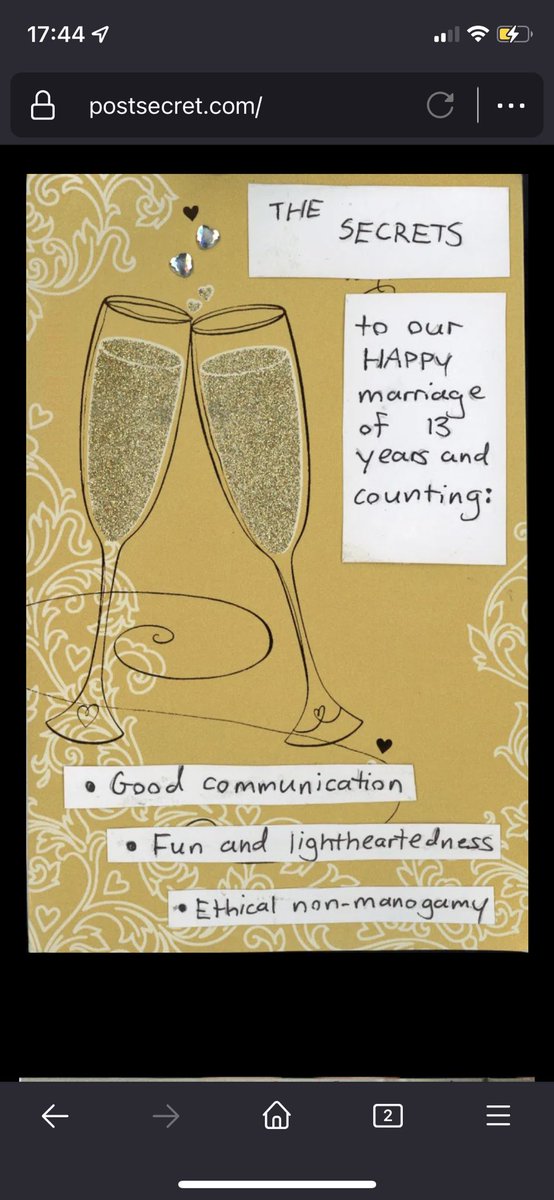 17:44
postsecret.com/
THE
SECRETS
to our
HAPPY
marriage
of 13
years and
counting:
• Good communication
• Fun and lightheartedness
• Ethical non-manogamy
2